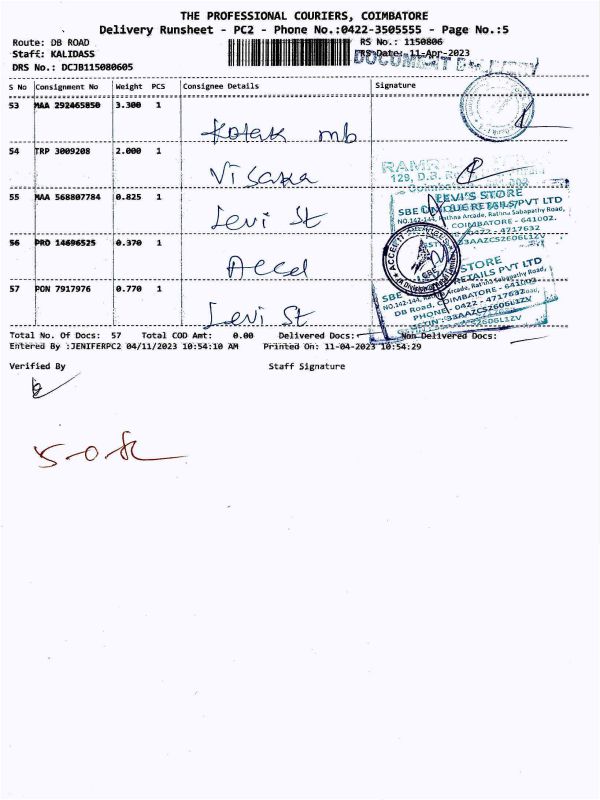 THE PROFESSIONAL COURIERS, COIMBATORE
Delivery Runsheet - PC2 - Phone No.:0422-3505555 - Page No.:5
Route: DB ROAD RS No.: 1150806
Staff: KALIDASS RS Date: 11-Apr-2023
DRS No.: DCJB115080605
DOCUMENT DELIVERY
S No Consignment No Weight PCS Consignee Details Signature
53 MAA 292465850 3.300 1
Kotak mb
54 TRP 3009208 2.000 1
Visaka
55 MAA 568807784 0.825 1
Levi St
56 PRO 14696525 0.370 1
Accel
57 PON 7917976 0.770 1
Levi St
LEVI'S STORE
SBE UNIQUE RETAILS PVT LTD
NO.142-144, Rathna Arcade, Rathna Sabapathy Road,
COIMBATORE - 641002.
0422 - 4717632
33AAZCS2606L1ZV
STORE
SBE RETAILS PVT LTD
NO.142-144, Rathna Arcade, Rathna Sabapathy Road,
DB Road, COIMBATORE - 641002
PHONE: 0422 - 4717632
GSTIN : 33AAZCS2606L1ZV
Total No. Of Docs: 57 Total COD Amt: 0.00 Delivered Docs: Non Delivered Docs:
Entered By :JENIFERPC2 04/11/2023 10:54:10 AM Printed On: 11-04-2023 10:54:29
Verified By Staff Signature